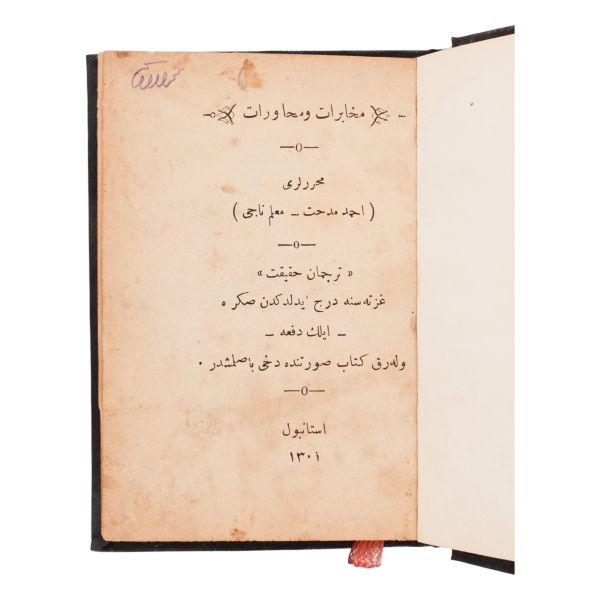 مخابرات و محاورات
محررلری
( احمد مدحت ــ معلم ناجی )
« ترجمان حقیقت »
غزته سنه درج ایدلدکدن صکره
ــ ایلك دفعه ــ
وله رق كتاب صورتنده دخی باصلمشدر ٠
استانبول
١٣٠١